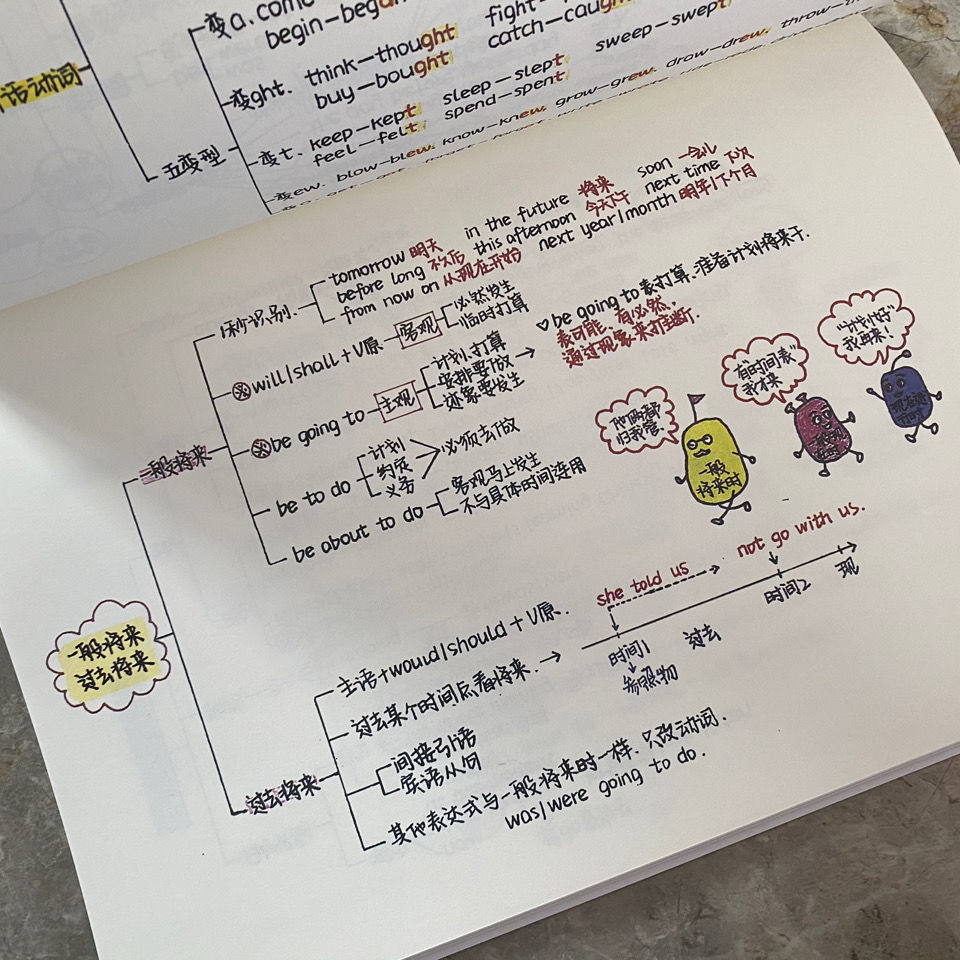 变a. come
begin—began
fight-
catch—caught
活动词
变ght. think—thought
buy—bought
五变型
变t. keep—kept sleep—slept sweep—swept
feel—felt spend—spent
变ew. blow—blew. know—knew. grow—grew. drow—drew. throw—th
1秒识别.
tomorrow 明天 in the future 将来 soon 一会儿
before long 不久后 this afternoon 今天下午 next time 下次
from now on 从现在开始 next year/month 明年/下个月
will/shall+V原 客观
必然发生
临时打算
be going to 主观
计划.打算
安排要做
迹象要发生
be going to 表打算.准备计划将来干.
表可能.有必然.
通过现象来打判断.
一般将来
be to do
计划
约定
义务
必须去做
be about to do
客观马上发生
不与具体时间连用
他俩都
归我管
有"时间表"
我才来
"计划好"
我再来!
一般
将来时
一般将来
过去将来
she told us
not go with us.
时间1
过去
时间2
现
参照物
主语+would/should+V原.
过去某个时间点看将来.
过去将来
间接引语
宾语从句
其他表达式与一般将来时一样.只改动词.
was/were going to do.